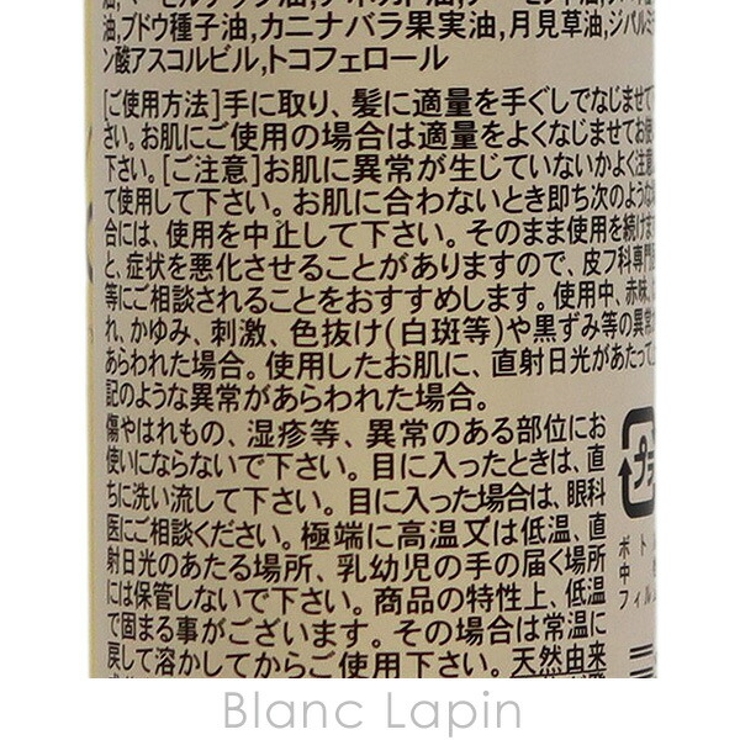 油,ブドウ種子油,カニナバラ果実油,月見草油,ジパルミ
ン酸アスコルビル,トコフェロール
[ご使用方法]手に取り、髪に適量を手ぐしでなじませて
さい。お肌にご使用の場合は適量をよくなじませてお使
下さい。[ご注意]お肌に異常が生じていないかよく注意
て使用して下さい。お肌に合わないとき即ち次のような
合には、使用を中止して下さい。そのまま使用を続けま
と、症状を悪化させることがありますので、皮フ科専門
等にご相談されることをおすすめします。使用中、赤味、
れ、かゆみ、刺激、色抜け(白斑等)や黒ずみ等の異常
あらわれた場合。使用したお肌に、直射日光があたって
記のような異常があらわれた場合。
傷やはれもの、湿疹等、異常のある部位にお
使いにならないで下さい。目に入ったときは、直
ちに洗い流して下さい。目に入った場合は、眼科
医にご相談ください。極端に高温又は低温、直
射日光のあたる場所、乳幼児の手の届く場所
には保管しないで下さい。商品の特性上、低温
で固まる事がございます。その場合は常温に
戻して溶かしてからご使用下さい。天然由来
プラ
ボト
中
フィル
Blanc Lapin